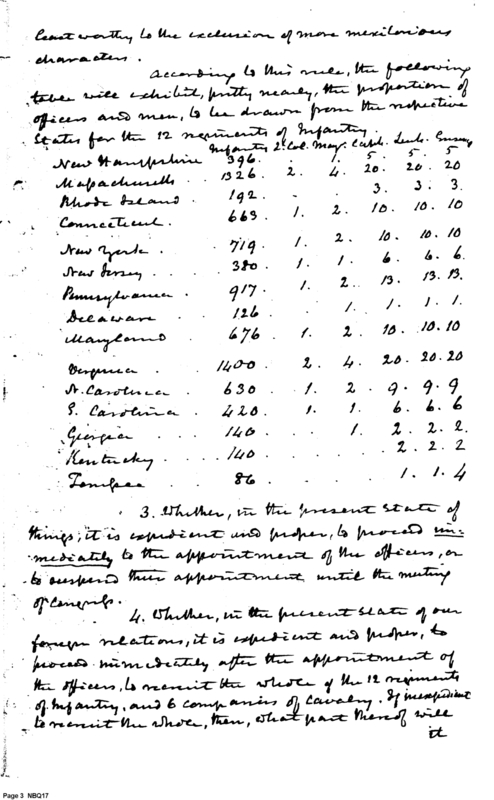 least worthy to the exclusion of more meritorious
characters.
According to this rule, the following
table will exhibit, pretty nearly, the proportion of
officers and men, to be drawn from the respective
States for the 12 regiments of Infantry.
Infantry Lt. Col. Maj. Capts. Leuts. Ensigns
New Hampshire 396. . 1. 5. 5. 5
Massachusetts . 1326. 2. 4. 20. 20. 20
Rhode Island . 192. . . 3. 3. 3.
Connecticut. . 663. 1. 2. 10. 10. 10
New York. . . 719. 1. 2. 10. 10. 10
New Jersey. . . 380. 1. 1. 6. 6. 6.
Pennsylvania . . 917. 1. 2. 13. 13. 13.
Delaware . . 126 . 1. 1. 1. 1
Maryland . . 676. 1. 2. 10. 10. 10
Virginia . . 1400. 2. 4. 20. 20. 20
N. Carolina . . 630. 1. 2. 9. 9. 9
S. Carolina . . 420. 1. 1. 6. 6. 6
Georgia . . . 140 . . 1. 2. 2. 2.
Kentucky . . . 140. . . 2. 2. 2
Tennessee . . 86 . . 1. 1. 4
3. Whether, in the present state of
things, it is expedient and proper, to proceed im-
mediately to the appointment of the officers, or
to suspend their appointment until the meeting
of Congress.
4. Whether, in the present state of our
foreign relations, it is expedient and proper, to
proceed immediately after the appointment of
the officers, to recruit the whole of the 12 regiments
of Infantry, and 6 companies of Cavalry. If inexpedient
to recruit the whole, then, what part thereof will
it
Page 3 NBQ17